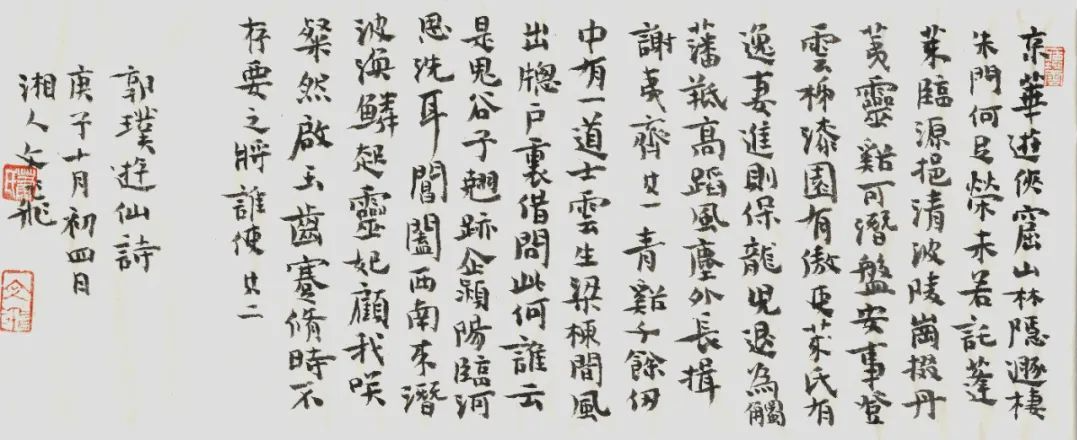 京華遊俠窟山林隱遯棲
朱門何足榮未若託蓬
萊臨源挹清波陵崗掇丹
荑靈谿可潛盤安事登
雲梯漆園有傲吏萊氏有
逸妻進則保龍見退為觸
藩羝高蹈風塵外長揖
謝夷齊其一青谿千餘仞
中有一道士雲生梁棟間風
出牕戶裏借問此何誰云
是鬼谷子翹跡企潁陽臨河
思洗耳閶闔西南來潛
波渙鱗起靈妃顧我咲
粲然啟玉齒蹇脩時不
存要之將誰使其二
郭璞遊仙詩
庚子十月初四日
湘人文飛
文飛